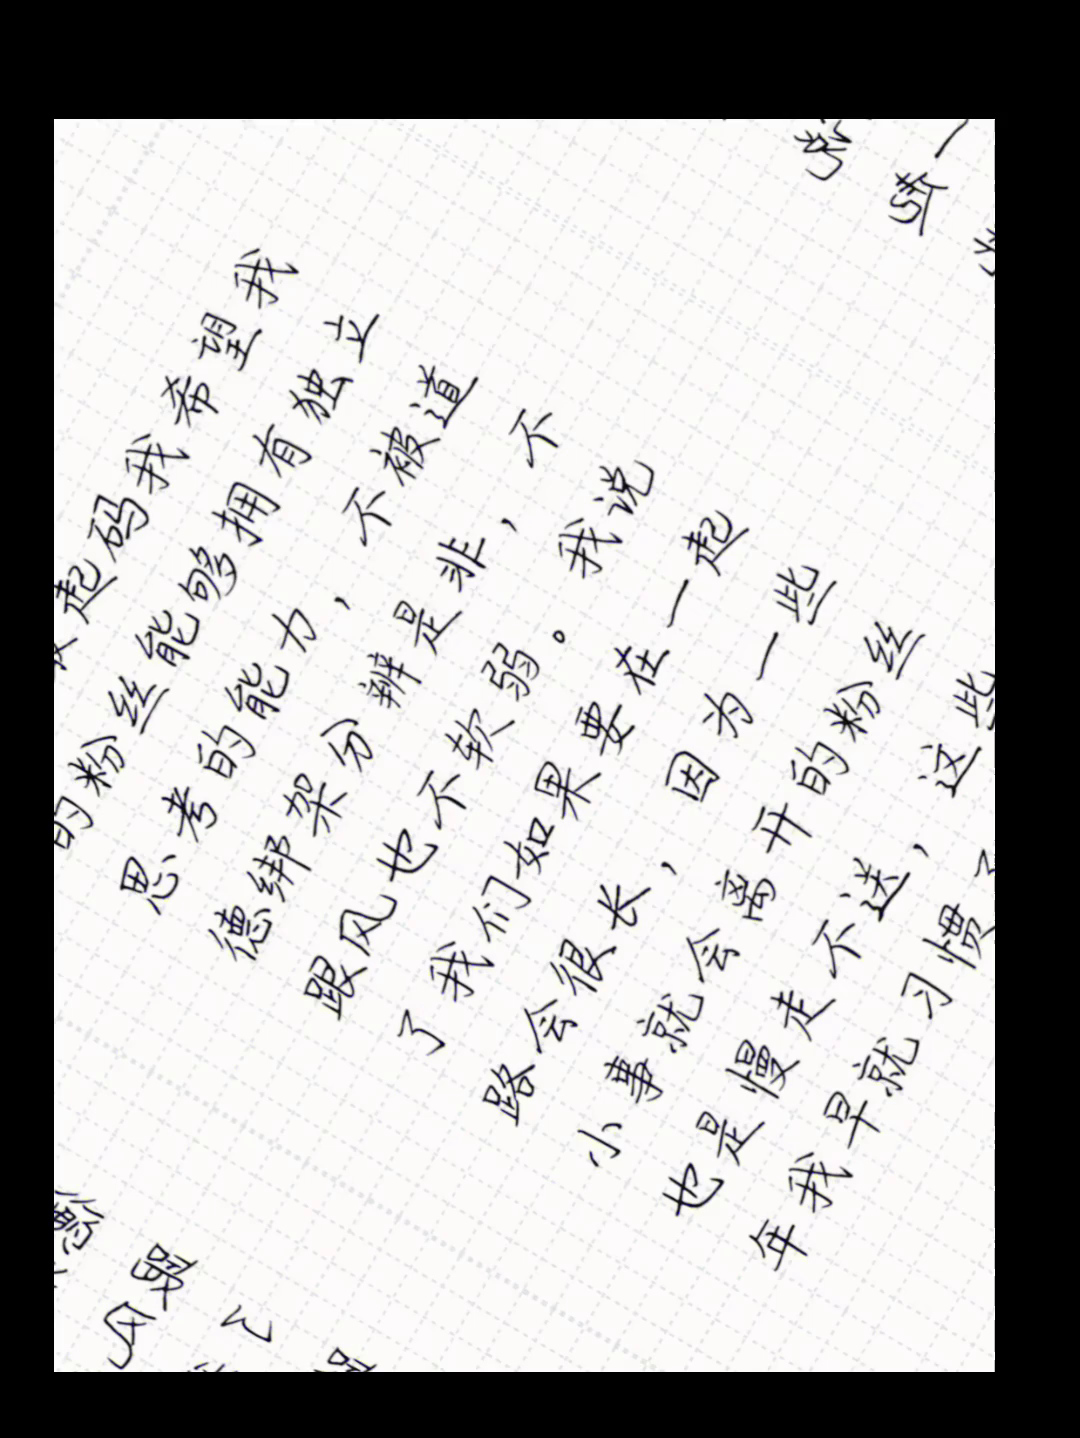 起码我希望我
的粉丝能够拥有独立
思考的能力，不被道
德绑架分辨是非，不
跟风也不软弱。我说
了我们如果要在一起
路会很长，因为一些
小事就会离开的粉丝
也是慢走不送，这些
年我早就习惯了